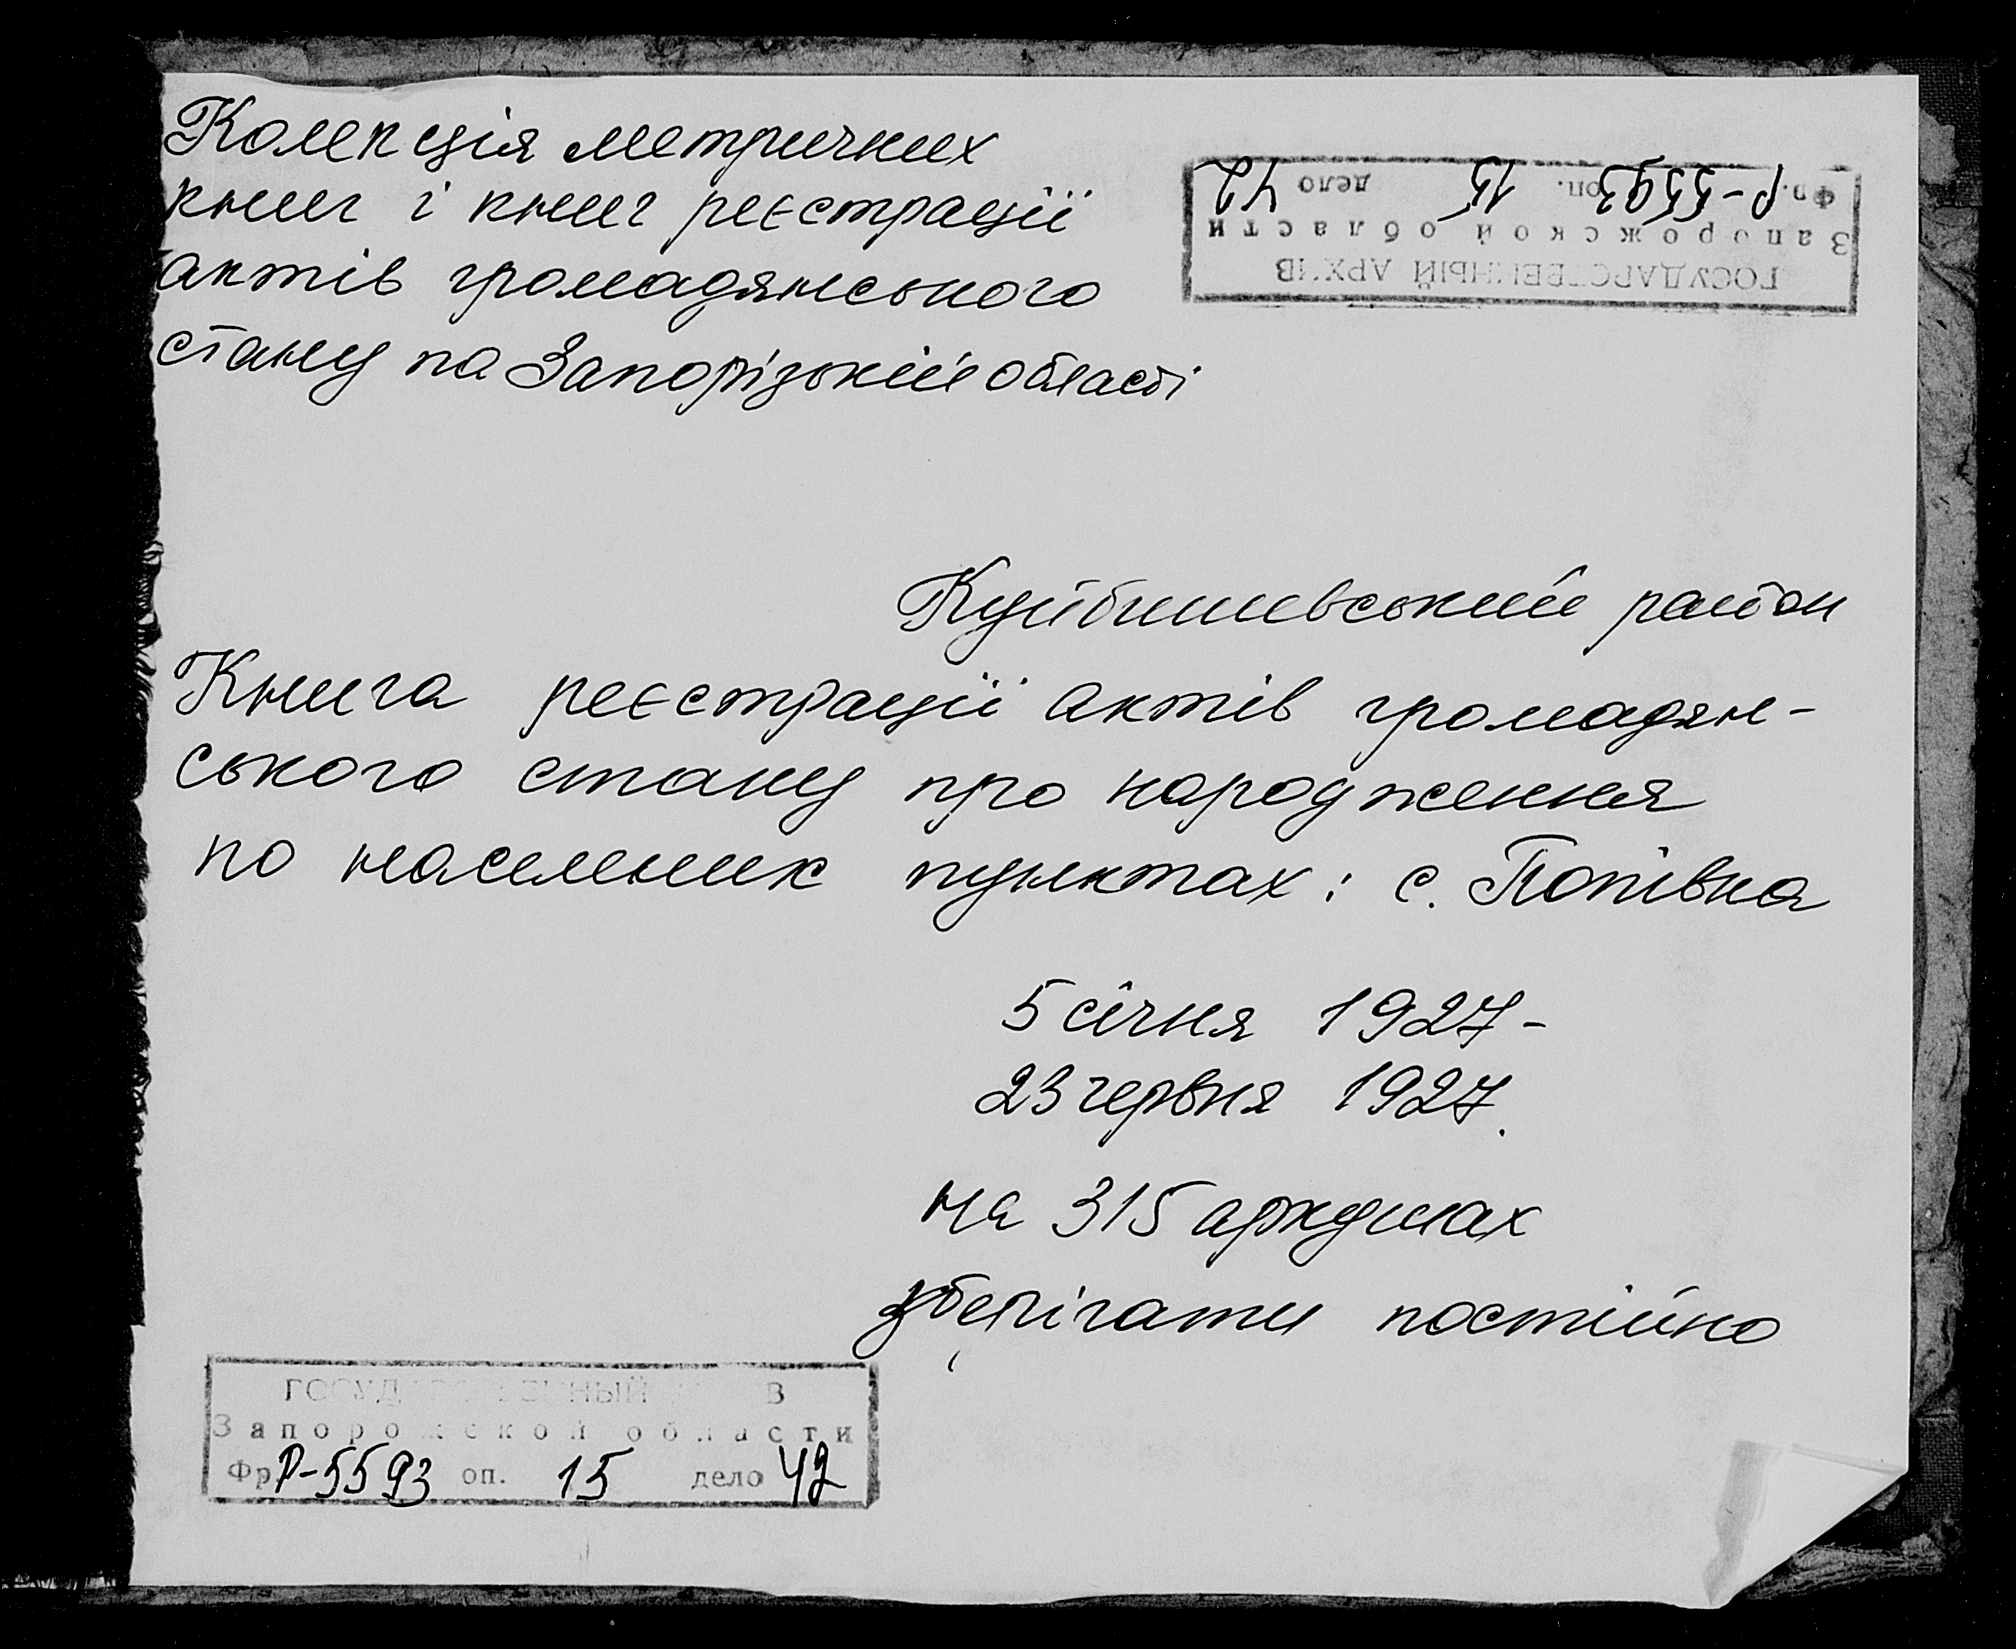 Колекція метричних
книг і книг реєстрації
актів громадянського
стану по Запорізькій області
ГОСУДАРСТВЕННЫЙ АРХИВ
Запорожской области
Фр. Р-5593 оп. 15 дело 42
Куйбишевський район
Книга реєстрації актів громадян-
ського стану про народження
по населених пунктах: с. Попівка
5 січня 1927-
23 червня 1927.
на 315 аркушах
зберігати постійно
ГОСУДАРСТВЕННЫЙ АРХИВ
Запорожской области
Фр. Р-5593 оп. 15 дело 42